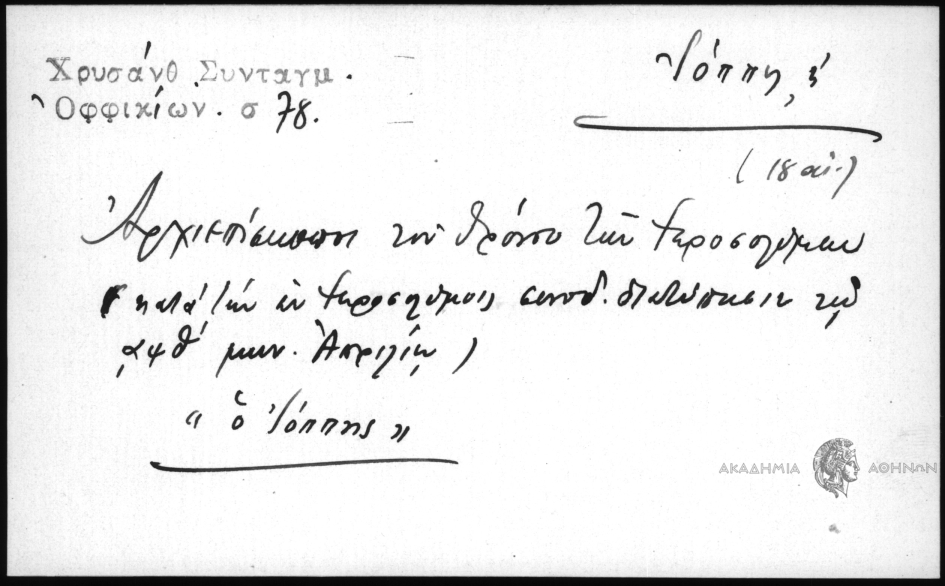 Χρυσάνθ Συνταγμ.
Ὀφφικίων. σ 78.
Ἰόππη, ἡ
(18 αἰ.)
Ἀρχιεπίσκοποι τοῦ θρόνου τῶν Ἱεροσολύμων
(κατὰ τὴν ἐν Ἱεροσολύμοις συνοδ. διατύπωσιν τῷ
͵αψθ́ μην. Ἀπριλίῳ)
« ὁ Ἰόππης »
ΑΚΑΔΗΜΙΑ ΑΘΗΝΩΝ